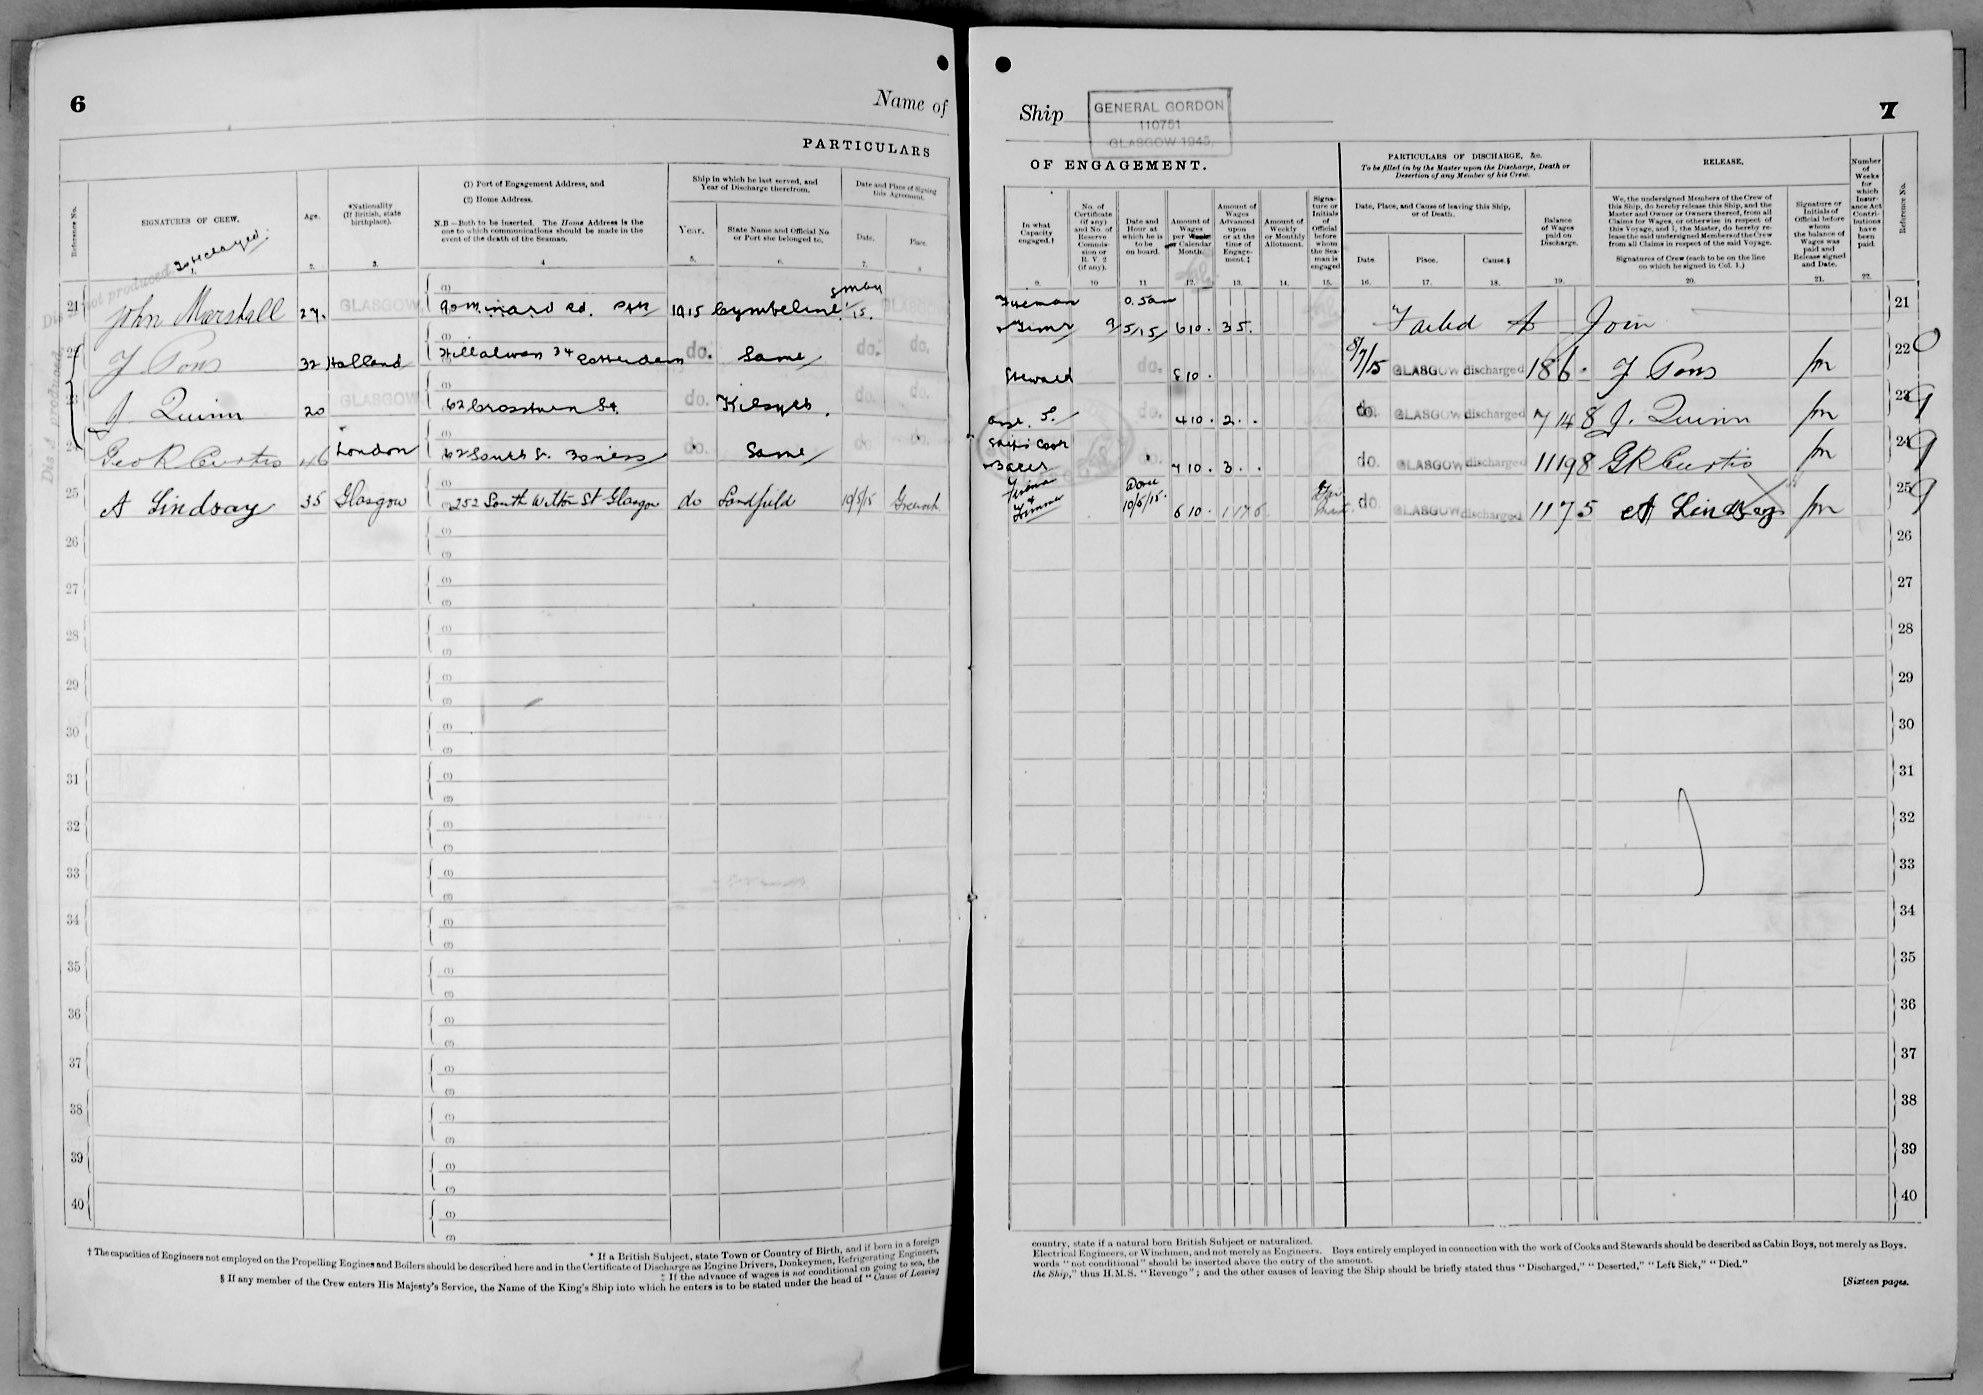 6
Name of
PARTICULARS
Reference No.
SIGNATURES OF CREW.
Age.
*Nationality
(If British, state
birthplace).
(1) Port of Engagement Address, and
(2) Home Address.
N.B.—Both to be inserted. The Home Address is the
one to which communications should be made in the
event of the death of the Seaman.
Ship in which he last served, and
Year of Discharge therefrom.
Year.
State Name and Official No.
or Port she belonged to.
Date and Place of Signing
this Agreement.
Date.
Place.
2. 3. 4 5. 6. 7. 8
not produced
Dis A produced
21 John Marshall 27. GLASGOW (1) 90 Minard Rd. 1915 Cymbeline 8 May /15. GLASGOW
22 J Pons 32 Holland Rotterdam do. Same do. do.
23 J. Quinn 20 GLASGOW 62 Crossburn St. do. Kilsyth. do. do.
24 Geo R Curtis 46 London 62 South St. Boness do. Same do do
25 A Lindsay 35 Glasgow 252 South Witton St Glasgow do Sandfield 10/5/15 Greenock
26
27
28
29
30
31
32
33
34
35
36
37
38
39
40
† The capacities of Engineers not employed on the Propelling Engines and Boilers should be described here and in the Certificate of Discharge as Engine Drivers, Donkeymen, Refrigerating Engineers,
* If a British Subject, state Town or Country of Birth, and if born in a foreign
‡ If the advance of wages is not conditional on going to sea, the
§ If any member of the Crew enters His Majesty's Service, the Name of the King's Ship into which he enters is to be stated under the head of "Cause of Leaving
Ship
GENERAL GORDON
110751
GLASGOW 1945.
7
OF ENGAGEMENT.
PARTICULARS OF DISCHARGE, &c.
To be filled in by the Master upon the Discharge, Death or
Desertion of any Member of his Crew.
RELEASE.
In what
Capacity
engaged.†
No. of
Certificate
(if any)
and No. of
Reserve
Commis-
sion or
R. V. 2
(if any).
Date and
Hour at
which he is
to be
on board.
Amount of
Wages
per Week
or Calendar
Month.
Amount of
Wages
Advanced
upon
or at the
time of
Engage-
ment.‡
Amount of
Weekly
or Monthly
Allotment.
Signa-
ture or
Initials
of
Official
before
whom
the Sea-
man is
engaged
Date, Place, and Cause of leaving this Ship,
or of Death.
Date.
Place.
Cause.§
Balance
of Wages
paid on
Discharge.
We, the undersigned Members of the Crew of
this Ship, do hereby release this Ship, and the
Master and Owner or Owners thereof, from all
Claims for Wages, or otherwise in respect of
this Voyage, and I, the Master, do hereby re-
lease the said undersigned Members of the Crew
from all Claims in respect of the said Voyage.
Signatures of Crew (each to be on the line
on which he signed in Col. 1.)
Signature or
Initials of
Official before
whom
the balance of
Wages was
paid and
Release signed
and Date.
Number
of
Weeks
for
which
Insur-
ance Act
Contri-
butions
have
been
paid.
Reference No.
9. 10 11 12. 13. 14. 15. 16. 17. 18. 19. 20. 21. 22.
Fireman & Trimr 9/5/15 610. 35. Failed to Join 21
Steward do. 810. 8/7/15 GLASGOW discharged 186. J Pons 22
do. 410. 2.. do. GLASGOW discharged 7148 J. Quinn 23 9
Ships Cook & Baker 710. 3.. do. GLASGOW discharged 11198 GR Curtis 24 9
10/5/15. 610. do. GLASGOW discharged 1175 A Lindsay 25 9
26
27
28
29
30
31
32
33
34
35
36
37
38
39
40
country, state if a natural born British Subject or naturalized.
Electrical Engineers, or Winchmen, and not merely as Engineers. Boys entirely employed in connection with the work of Cooks and Stewards should be described as Cabin Boys, not merely as Boys.
words "not conditional" should be inserted above the entry of the amount.
the Ship," thus H.M.S. "Revenge"; and the other causes of leaving the Ship should be briefly stated thus "Discharged," "Deserted," "Left Sick," "Died."
[Sixteen pages.